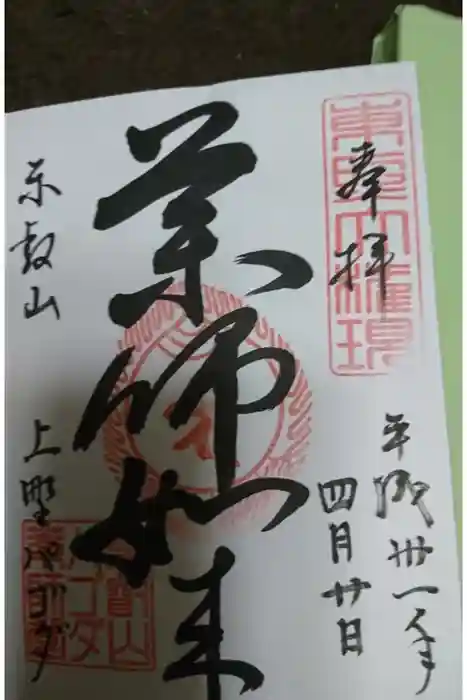 奉拝
東照大権現
平成丗一年
四月廿日
薬師如来
東叡山
上野パゴダ